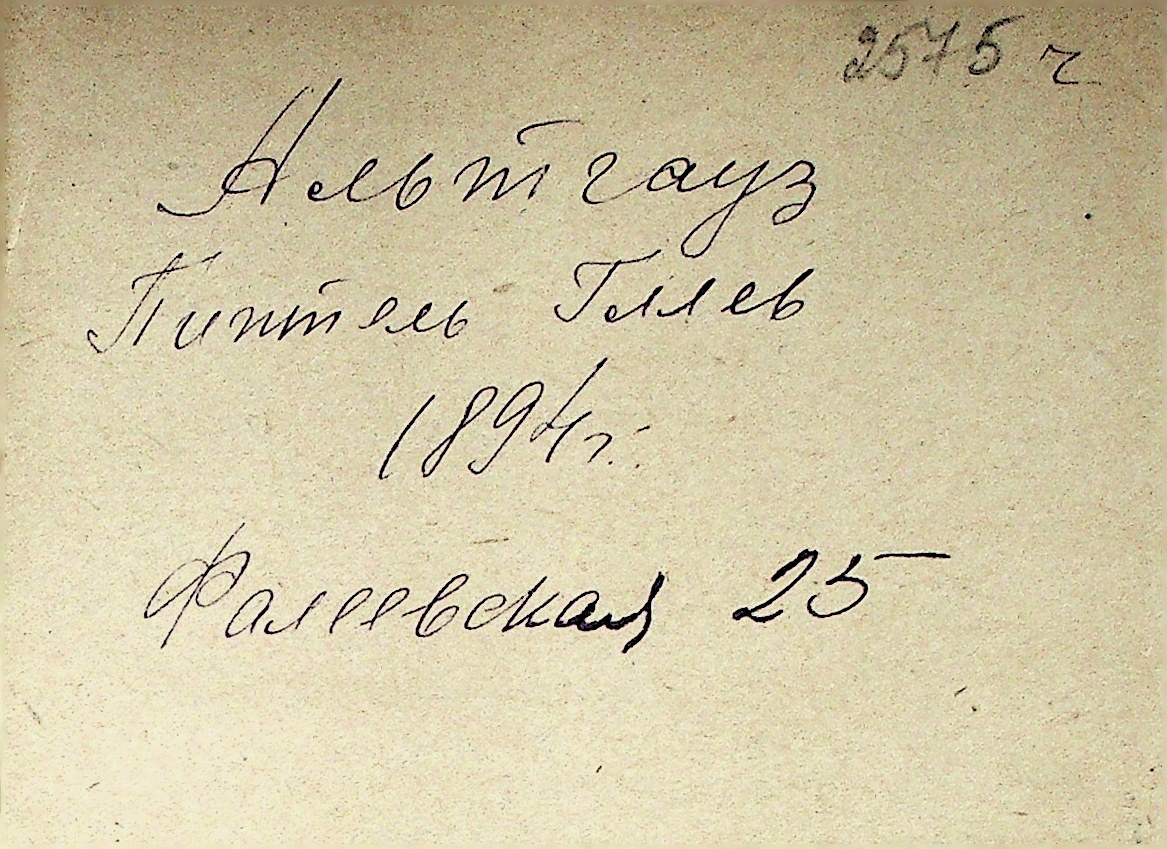 2575 ч
Альтгауз
Пинтель Гилев
1894 г.
Фалеевская 25